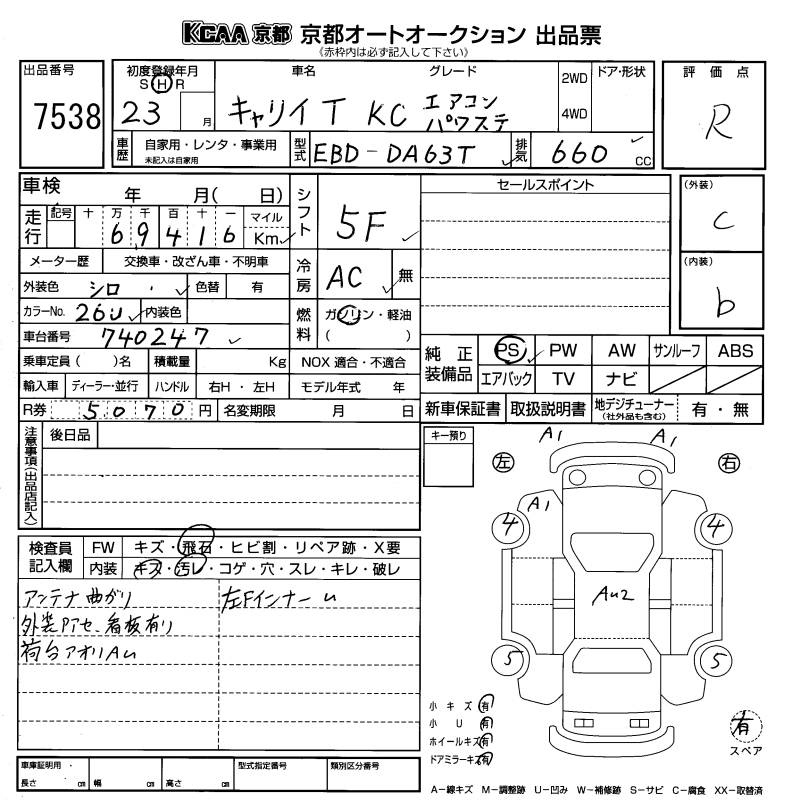 KCAA 京都 京都オートオークション 出品票
《赤枠内は必ず記入して下さい》
出品番号
7538
初度登録年月
S H R
23 月
車名 グレード
キャリイT KC エアコン
パワステ
2WD
4WD
ドア・形状
評価点
R
車歴
自家用・レンタ・事業用
未記入は自家用
型式
EBD-DA63T
排気
660 cc
車検 年 月( 日)
走行
記号 十 万 千 百 十 一
69416
マイル
Km
シフト
5F
セールスポイント
(外装)
C
(内装)
b
メーター歴 交換車・改ざん車・不明車
外装色 シロ 色替 有
カラーNo. 26U 内装色
車台番号 740247
冷房
AC 無
燃料
ガソリン・軽油
( )
乗車定員( )名 積載量 Kg NOX 適合・不適合
輸入車 ディーラー・並行 ハンドル 右H・左H モデル年式 年
R券 5070円 名変期限 月 日
純正装備品
PS PW AW サンルーフ ABS
エアバック TV ナビ
新車保証書 取扱説明書 地デジチューナー
(社外品も含む) 有・無
注意事項(出品店記入)
後日品
キー預り
左 右
A1 A1
A1
4 4
Au2
5 5
検査員
記入欄
FW キズ・飛石・ヒビ割・リペア跡・X要
内装 キズ・汚レ・コゲ・穴・スレ・キレ・破レ
アンテナ曲がり 左Fインナーu
外装Pアセ、看板有り
荷台アオリAu
小キズ 有
小U 有
ホイールキズ 有
ドアミラーキズ 有
有
スペア
車庫証明用・
長さ cm 幅 cm 高さ cm
型式指定番号 類別区分番号
A−線キズ M−調整跡 U−凹み W−補修跡 S−サビ C−腐食 XX−取替済